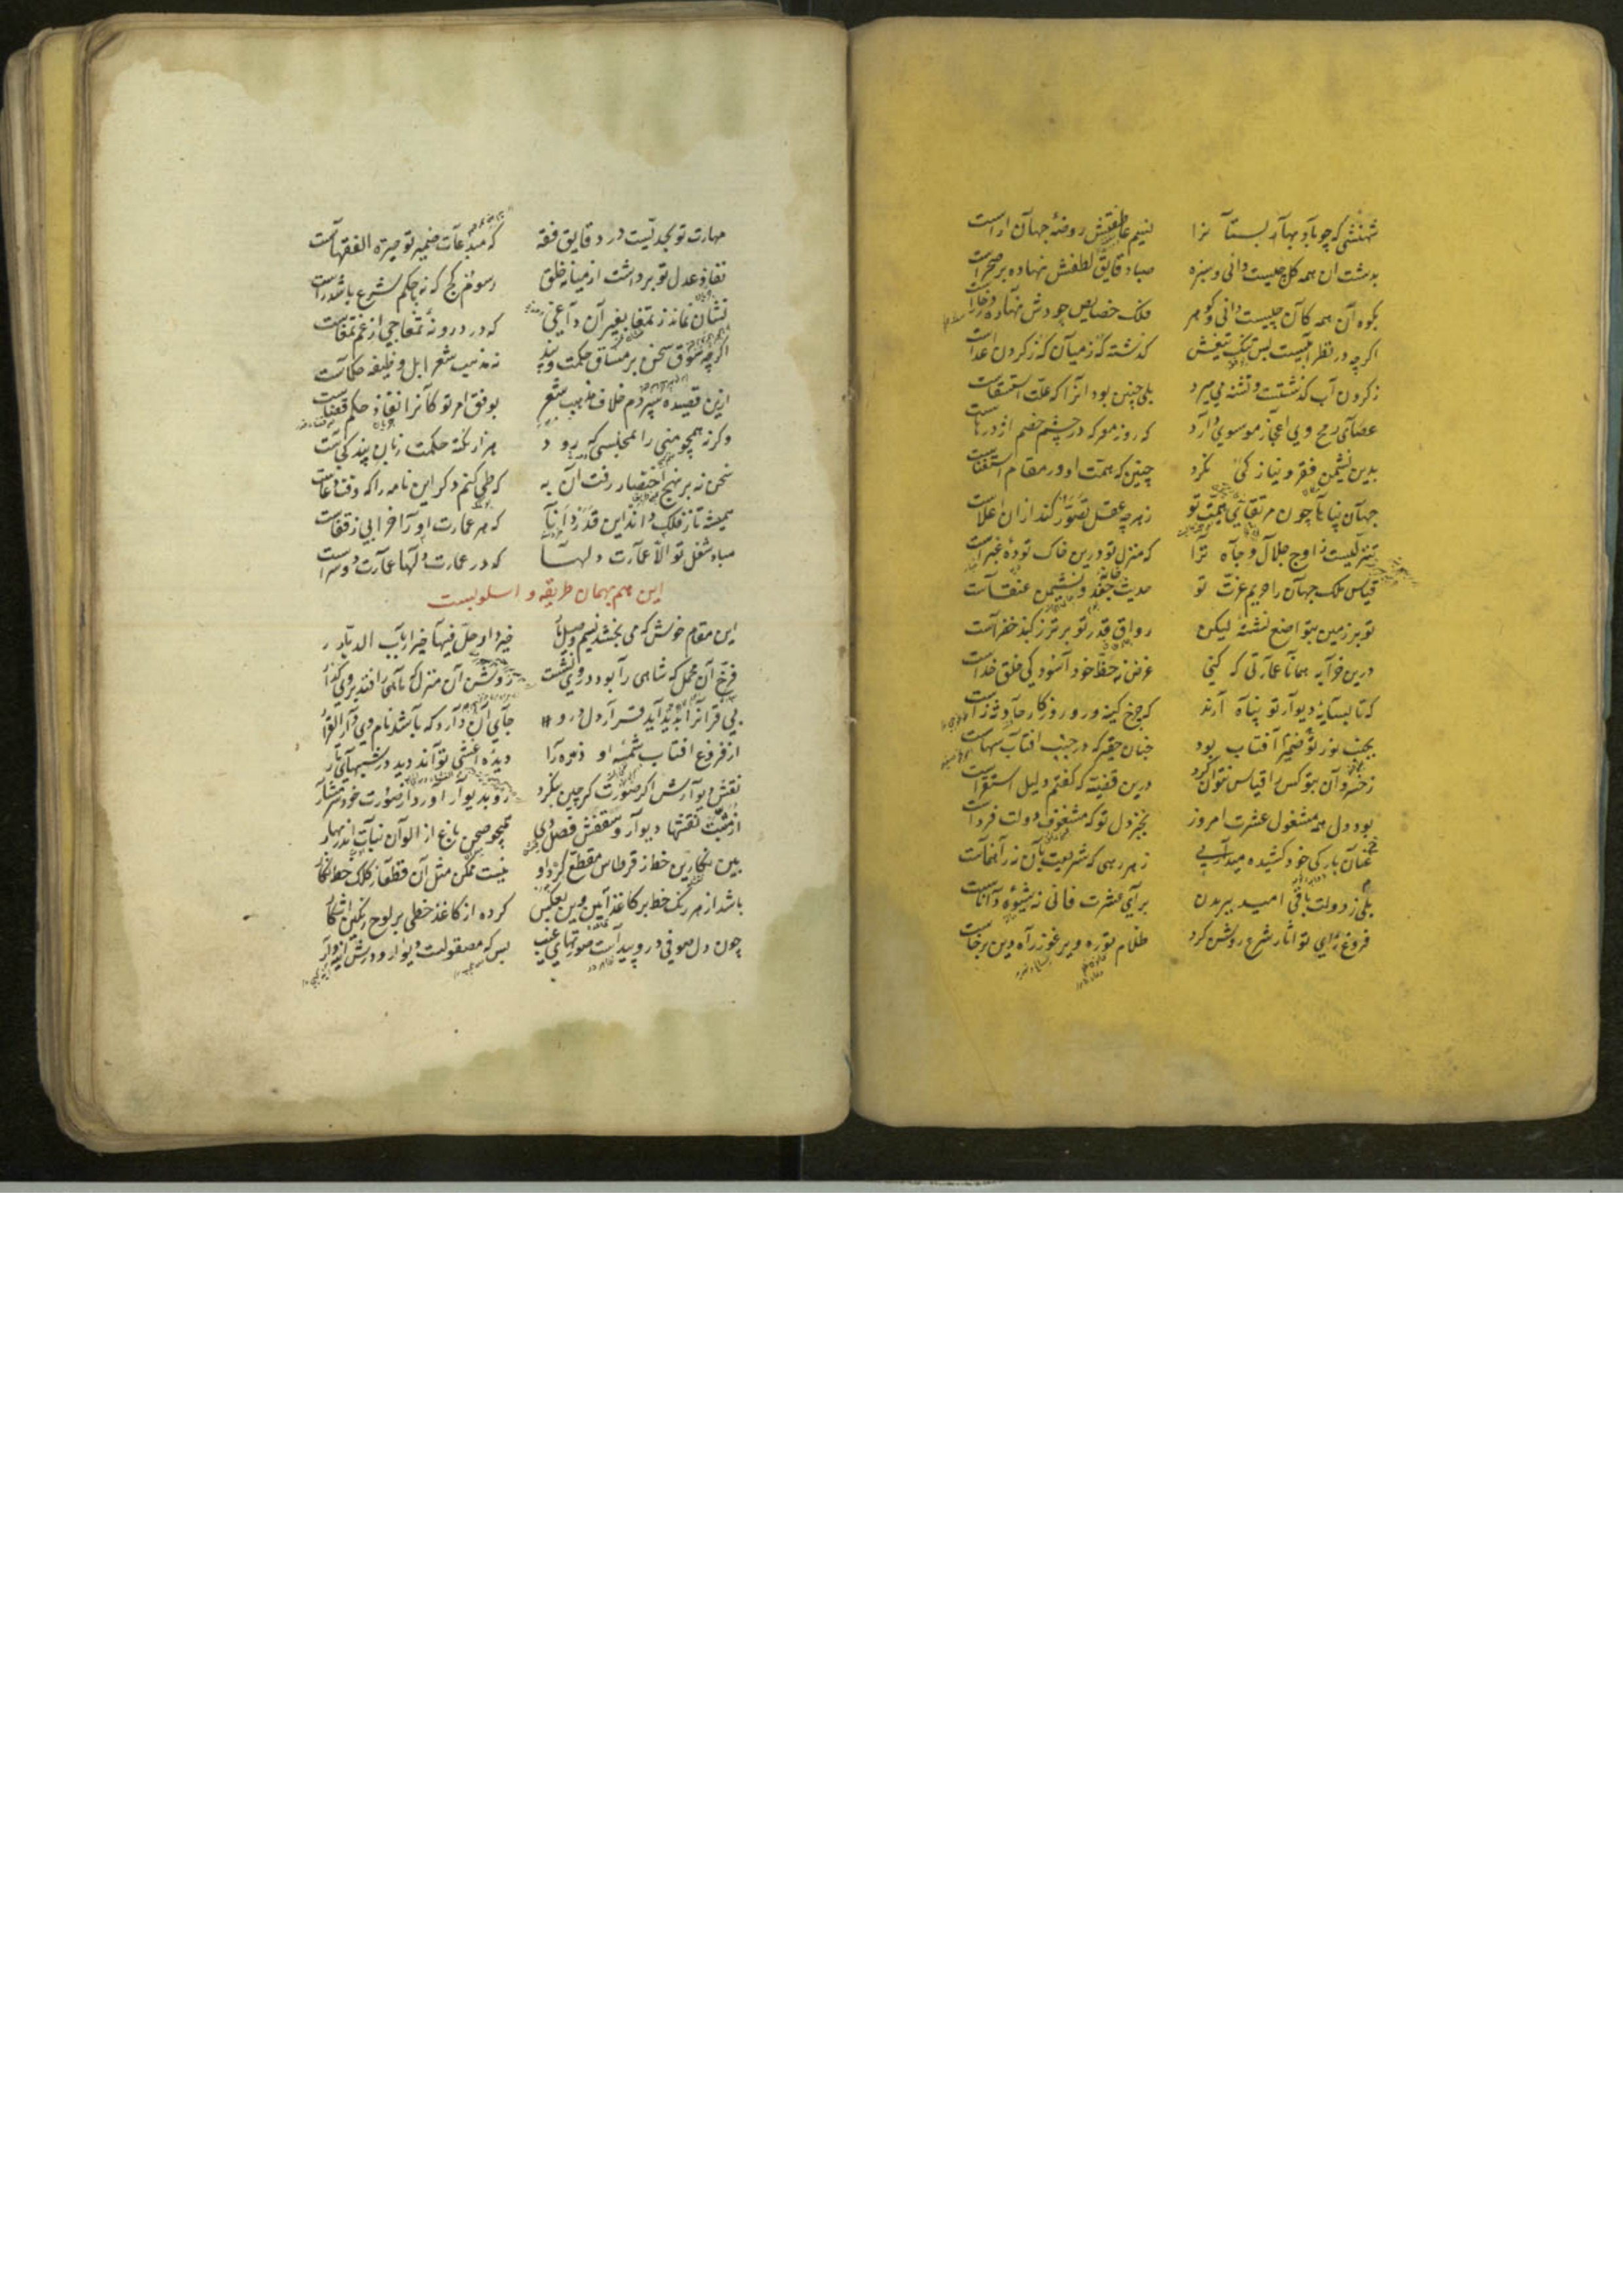 شهنشی که چو باد بهار بستانرا نسیم عاطفتش روضهٔ جهان آراست
بدشت ان همه کل چیست دانی و سبزه صبا دقایق لطفش نهاده بر صحراست
بکوه آن همه کان چیست دانی و کوهر فلک خصایص جودش نهاده
اکرچه در نظر آبیست بس تنک تیغش کذشته که ز میان که ز کردن اعداست
ز کردن آب کذشتست و تشنه می میرد بلی چنین بود انرا که علت استسقاست
عصای رمح وی اعجاز موسوی دارد که روز معرکه در چشم خصم اژدرهاست
بدین نشیمن فقر و نیاز کی نکرد چنین که همت او در مقام استغناست
جهان پناها چون مرتقای همت تو زهرچه عقل تصور کند ازان اعلاست
تنزلیست ز اوج جلال و جاه ترا که منزل تو درین خاک تودهٔ غبراست
قیاس ملک جهان را حریم عزت تو حدیث خانه جغد و نشیمن عنقاست
تو بر زمین بتواضع نشستهٔ لیکن رواق قدر تو برتر ز کنبذ خضراست
درین خرابه همانا عمارتی که کنی غرض نه حظ خود آسودکی خلق خداست
که تا بسایه دیوار تو پناه آرند که چرخ کینه ور و روزکار حادثه زاست
بجنب نور ضمیر تو آفتاب بود چنان حقیر که در جنب افتاب سهاست
ز خسروان بتو کس را قیاس نتوان کرد درین قضیه که کفتم دلیل استقراست
بود دل همه مشغول عشرت امروز بجز دل تو که مشغوف دولت فرداست
عنان بارکی خود کشیده میداری ز هر رهی که شریعت بآن نه راهنماست
بلی ز دولت باقی امید ببریدن برای عشرت فانی نه شیوهٔ داناست
فروغ رای تو اثار شرع روشن کرد ظلام توره و یرغو ز راه دین برخاست
مهارت تو بحدیست در دقایق فقه که مبدعات ضمیر تو حیرة الفقهاست
نفاذ عدل تو برداشت از میانه خلق رسوم کج که نه باحکم شرع باشد راست
نشان نماند ز تمغا بغیر آن داغی که در درونهٔ تمغاجی از غم تمغاست
اکرچه سوق سخن بر مساق حکمت و پند نه مذهب شعرا بل وظیفه حکماست
ازین قصیده سپردم خلاف مذهب شعر بوفق امر تو کانرا نفاذ حکم قضاست
وکرنه همچو منی را بمجلسی که رود هزار نکته حکمت زبان پند کجاست
سخن نه بر نهج اختصار رفت آن به که طی کنم دکر این نامه را که وقت دعاست
همیشه تا ز فلک داند این قدر دانا که هر عمارت او را خرابیی ز قفاست
مباد شغل تو الا عمارت دلها که در عمارت دلها عمارت دو سراست
این هم بهمان طریقه و اسلوبست
این مقام خوش که می بخشد نسیم وصل یار خیر دار حل فیها خیر ارباب الدیار
فرخ آن محمل که شاهی را بود در وی نشست روشن آن منزل که ماهی را فتد بر وی کذار
بی قرار آنرا پدید آید قرار دل درو جای آن دارد که باشد نام وی دار القرار
از فروغ افتاب شمسه او ذره را دیده اعشی تواند دید در شبهای تار
نقش دیوارش اکر صورت کر چین بنکرد رو بدیوار آورد از صورت خود شرمسار
از مثبت نقشها دیوار و سقفش فصل دی همچو صحن باغ از الوان نبات اندر بهار
بین نکارین خط ز قرطاس مقطع کرد او نیست ممکن مثل آن قطعا ز کلک خط نکار
باشد از هر رنک خط بر کاغذ آیین وین بعکس کرده از کاغذ خطی بر لوح رنکین آشکار
چون دل صوفی درو پیداست صورتهای غیب بس که مصقولست دیوار و درش آیینه وار